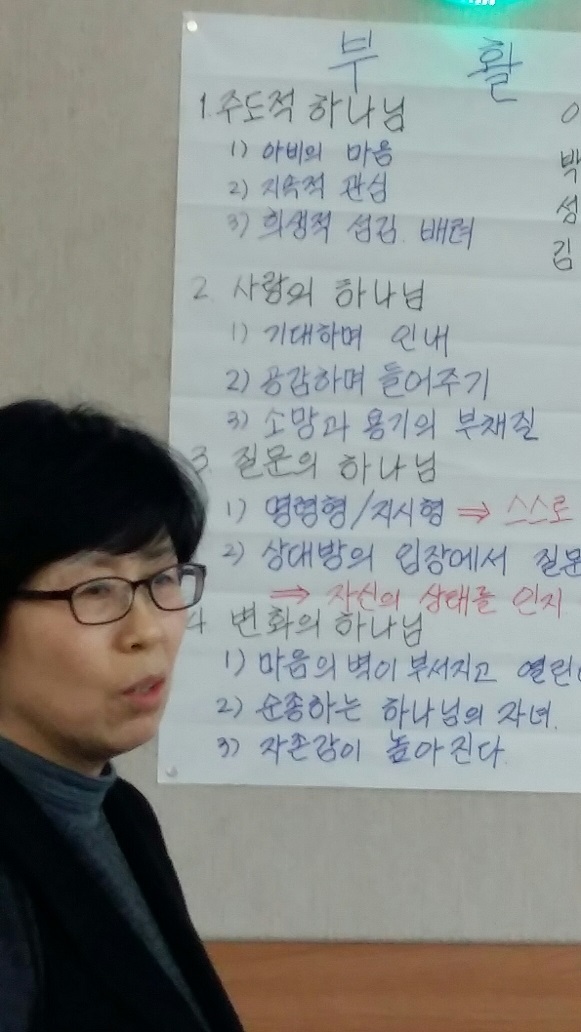 부 활
1. 주도적 하나님
1) 아비의 마음
2) 지속적 관심
3) 희생적 섬김. 배려
박
성
김
2. 사랑의 하나님
1) 기대하며 인내
2) 공감하며 들어주기
3) 소망과 용기의 부채질
3. 질문의 하나님
1) 명령형/지시형 ⇒ 스스로
2) 상대방의 입장에서 질문
⇒ 자신의 상태를 인지
4. 변화의 하나님
1) 마음의 벽이 부서지고 열린
2) 순종하는 하나님의 자녀.
3) 자존감이 높아진다.